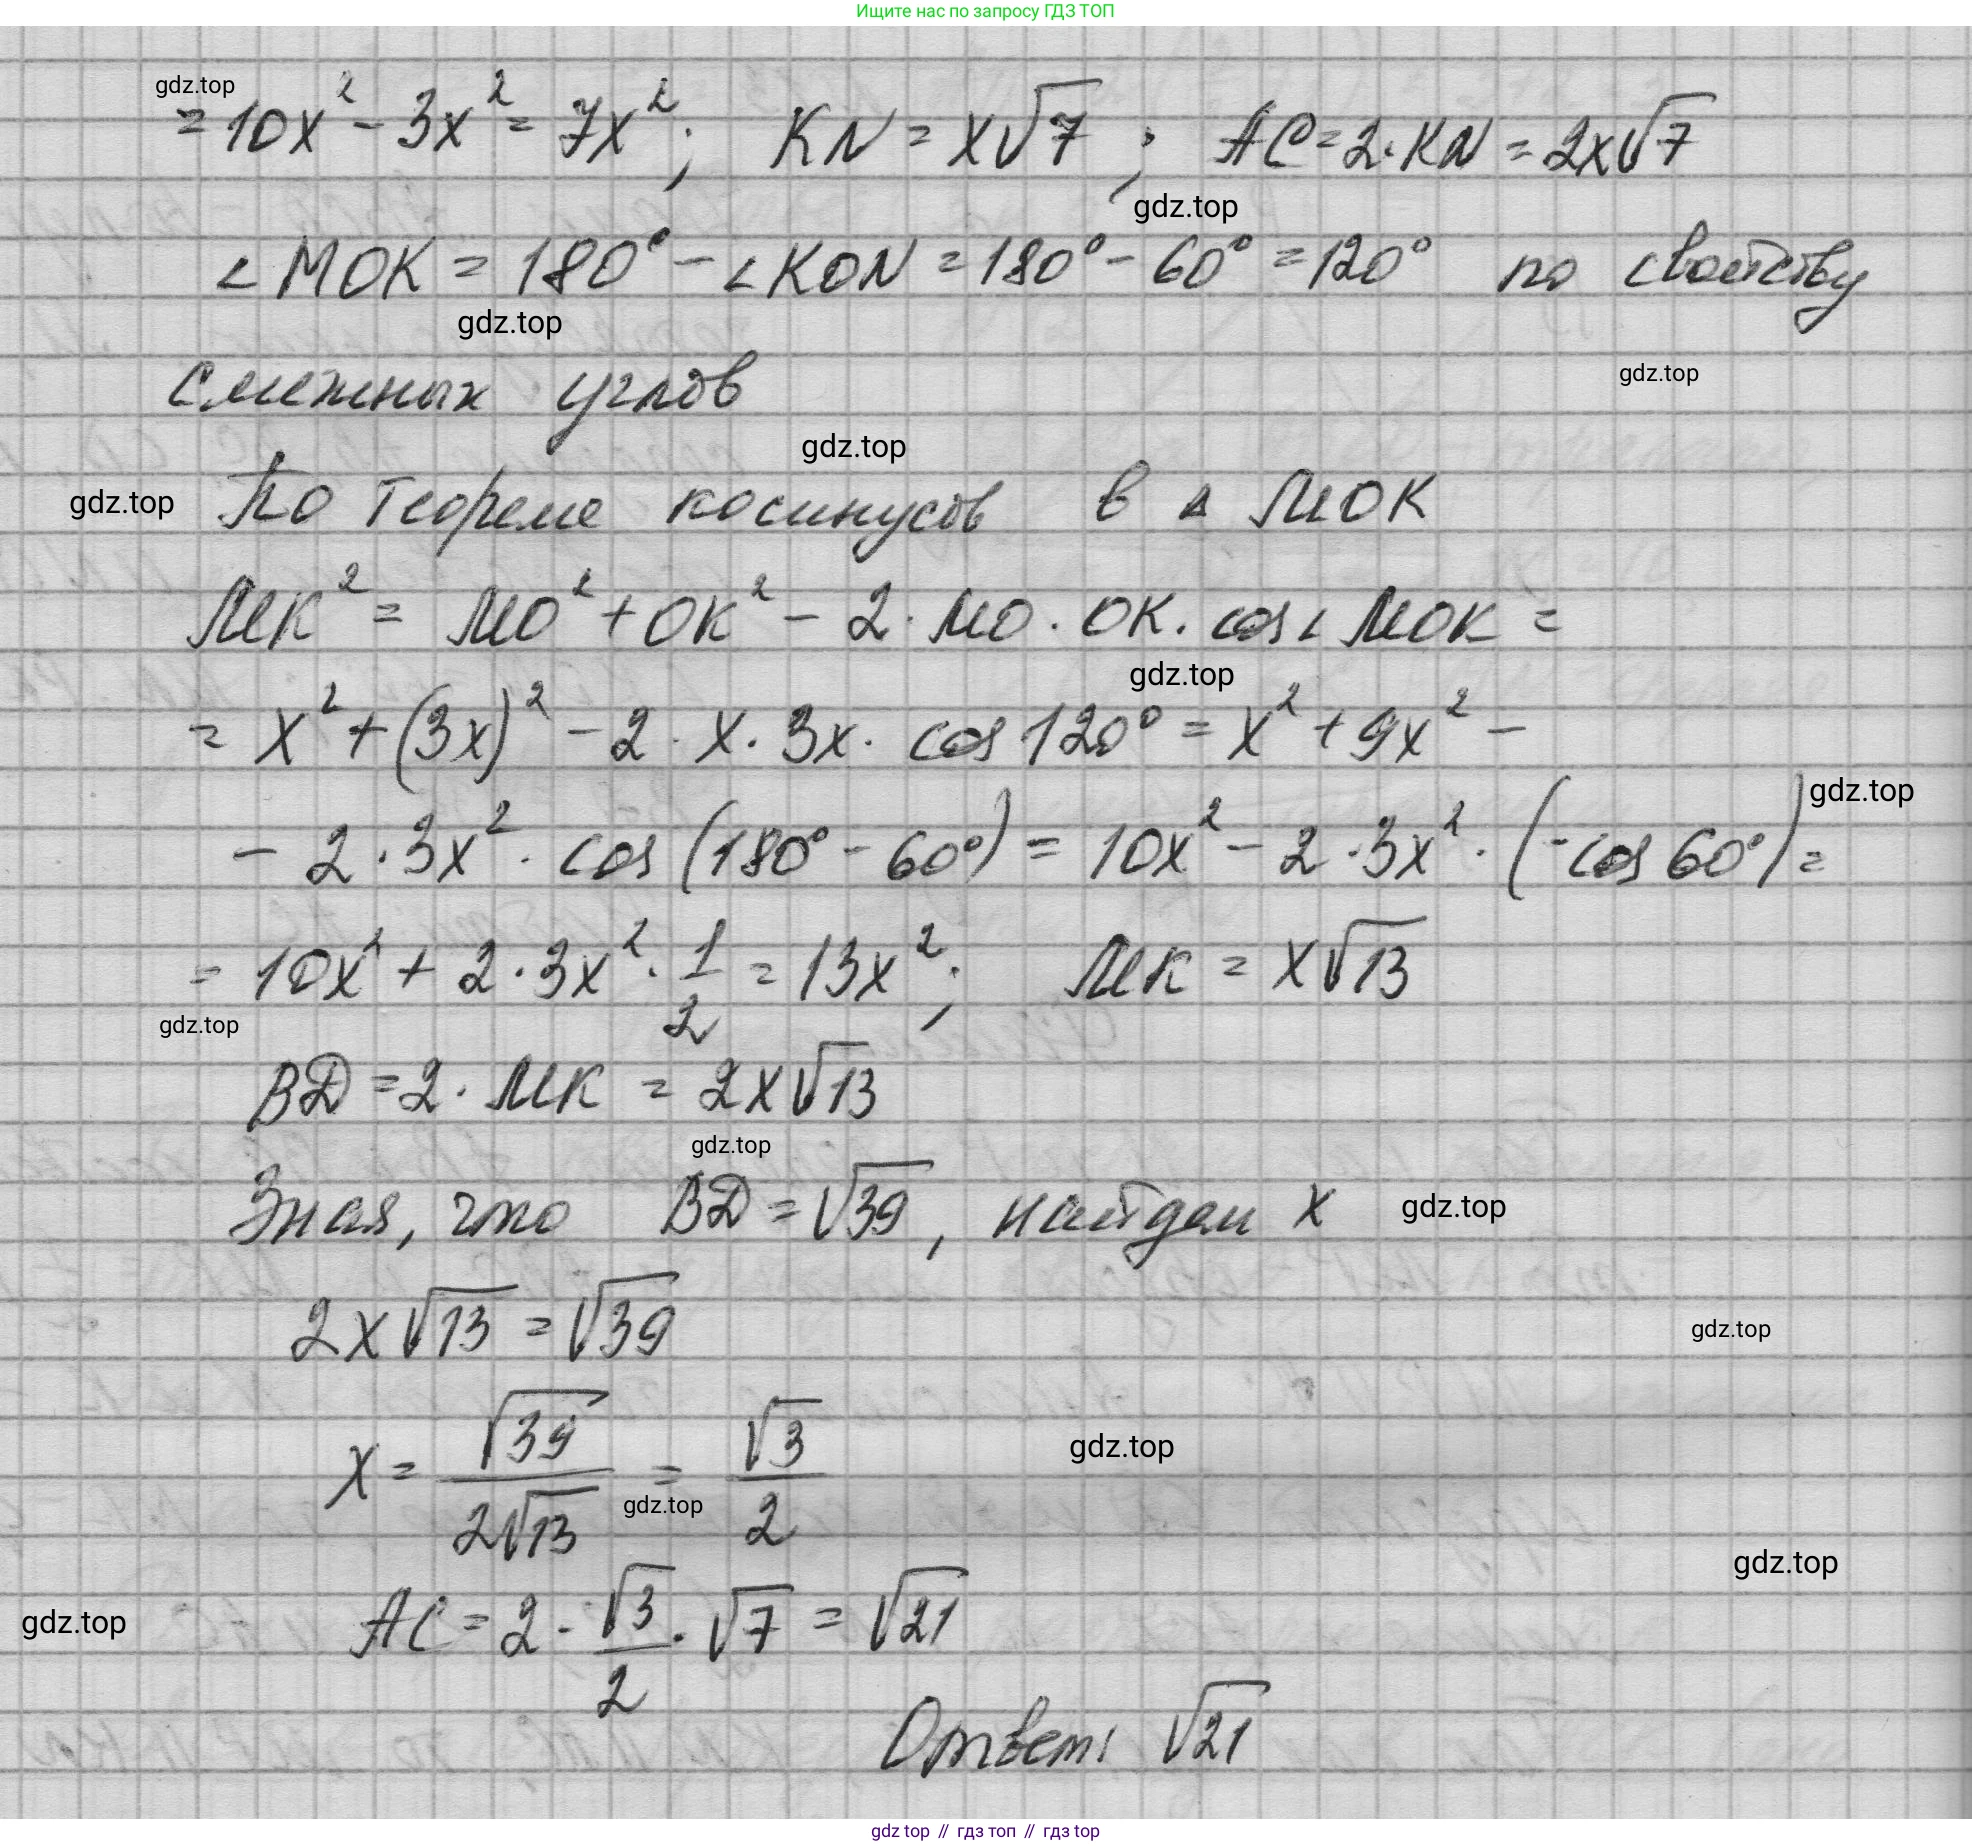 Ищите нас по запросу ГДЗ ТОП
gdz.top
= 10x² - 3x² = 7x²; KN = x√7; AC = 2·KN = 2x√7
gdz.top
∠MOK = 180° - ∠KON = 180° - 60° = 120° по свойству
gdz.top
gdz.top
смежных углов
gdz.top
gdz.top
По теореме косинусов в △ MOK
MK² = MO² + OK² - 2·MO·OK·cos∠MOK =
gdz.top
= x² + (3x)² - 2·x·3x·cos120° = x² + 9x² -
gdz.top
- 2·3x²·cos(180° - 60°) = 10x² - 2·3x²·(-cos60°) =
= 10x² + 2·3x²·1/2 = 13x²; MK = x√13
gdz.top
BD = 2·MK = 2x√13
gdz.top
Зная, что BD = √39, найдем x
gdz.top
2x√13 = √39
gdz.top
x = √39/2√13 = √3/2
gdz.top
gdz.top
gdz.top
AC = 2·√3/2·√7 = √21
gdz.top
Ответ: √21
gdz top // гдз топ // гдз top